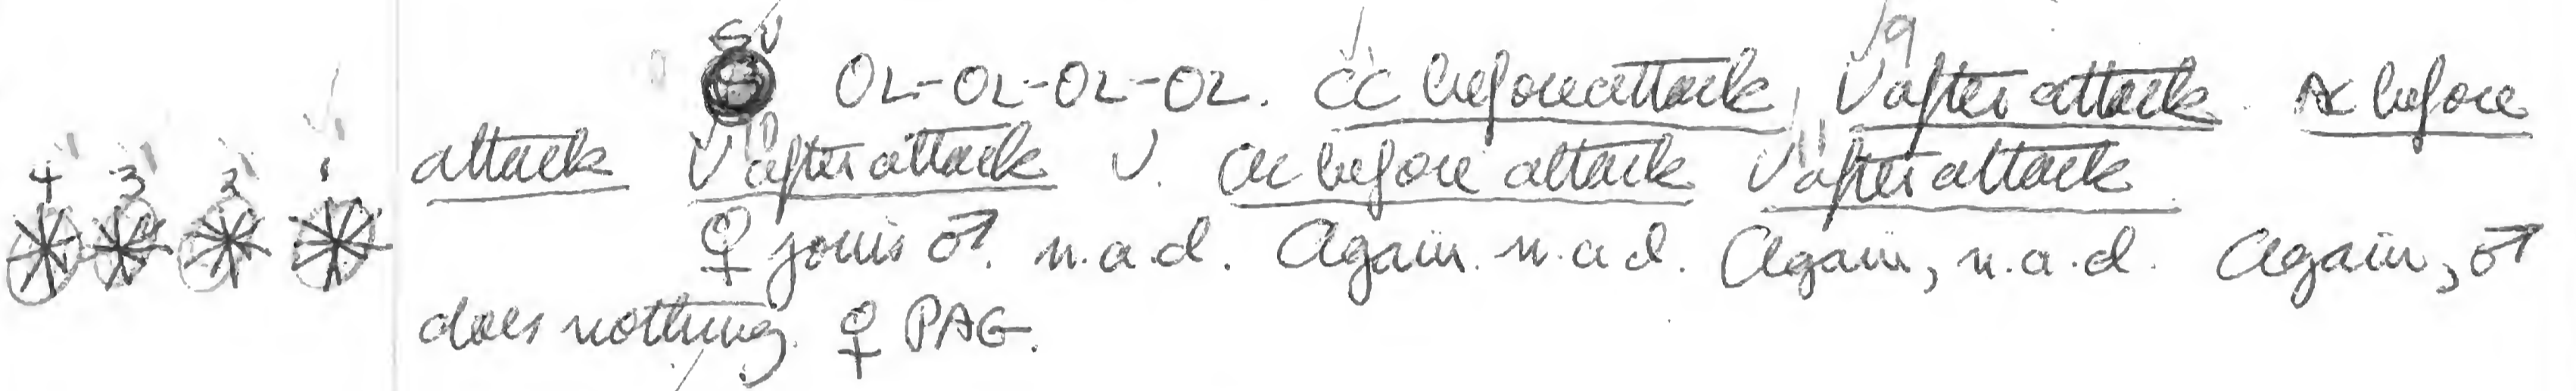 SV
OL-OL-OL-OL. CC before attack, V after attack. AC before
4 3 2 1 attack V after attack V. CC before attack V after attack
♀ joins ♂. n.a.d. Again. n.a.d. Again, n.a.d. Again, ♂
does nothing. ♀ PAG.